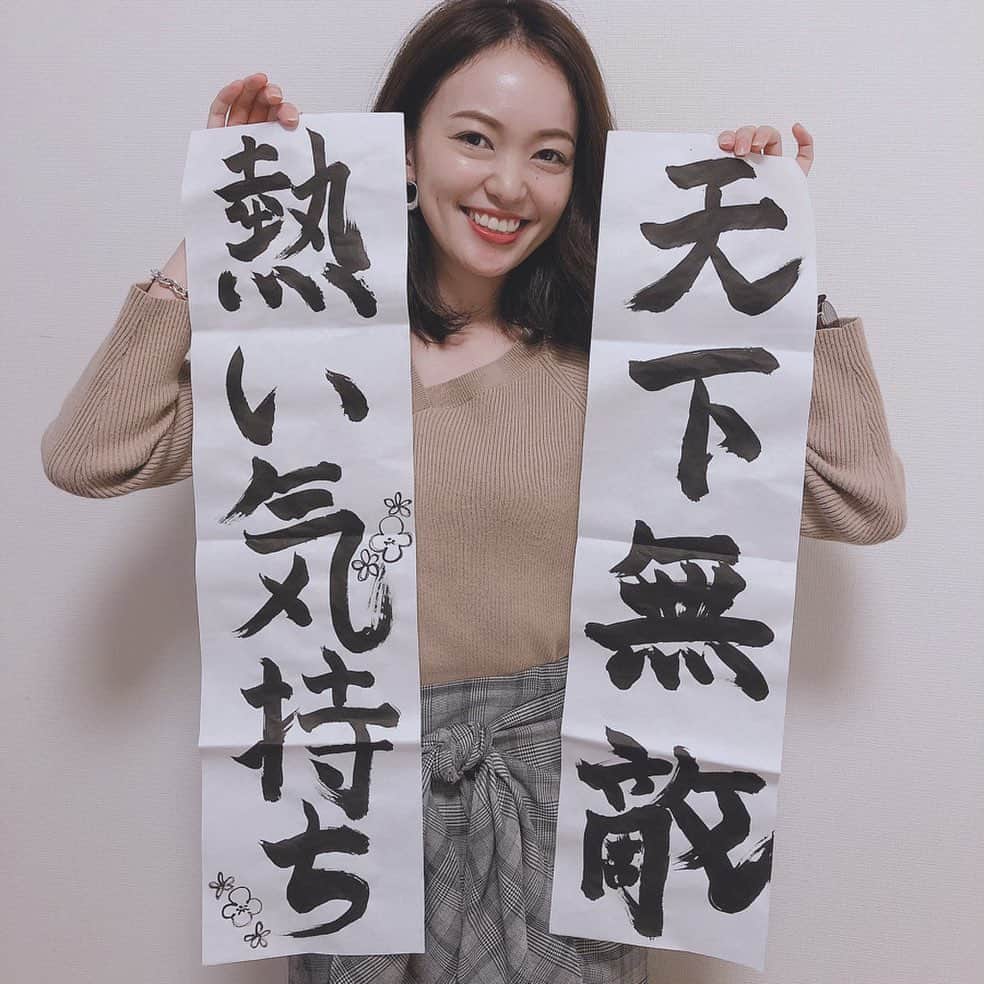 天下無敵
熱い気持ち